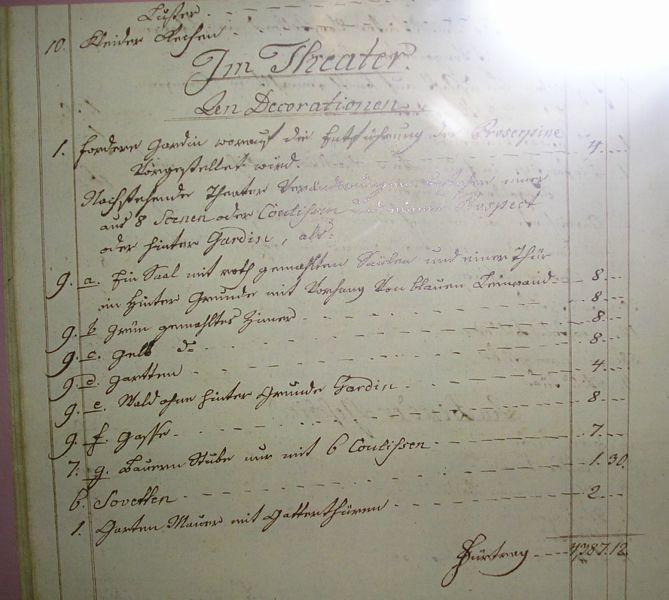 Luster
10. Kleider Rechen
Im Theater
An Decorationen
1. fordere Gardin worauf die Entführung der Proserpine 4
Vorgestellet wird.
Nachstehende Theater Veränderungen einer
aus 8 Scenen oder Coulissen und einem Prospect
oder hinter Gardin, als:
9. a. Ein Saal mit roth gemahlten Säulen und einer Thür
im hinter Grunde mit Vorhang von blauen Leinwand 8
9. b grün gemahltes Zimer 8
9. c. gelb do 8
9. d. Gartten 8
9. e. Wald ohne hinter Grunde Gardin 4
9. f. Gasse 8
7. g. Bauern Stube nur mit 6 Coulissen 7
6. Sovetten 1. 30
1. Garten Mauer mit Gatterthüren 2
Fürtrag 4387. 12